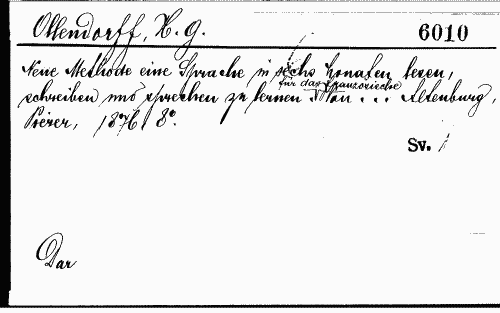 Ollendorff, H. G. 6010
Neue Methode eine Sprache in sechs Monaten lesen,
für das Französische
schreiben und sprechen zu lernen. Von ... Altenburg,
Pierer, 1876 8°.
Sv.
Dar